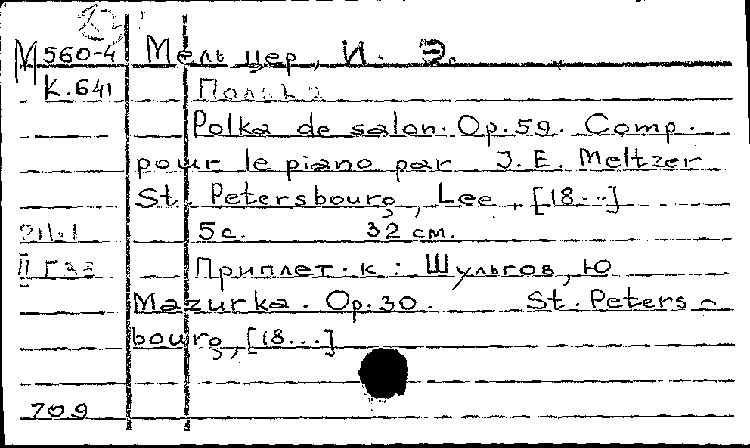 М 560-4 Мельцер, И. Э.
К.641 Полька
Polka de salon. Op. 59. Comp.
pour le piano par J. E. Meltzer
St. Petersbourg, Lee, [18...]
5 с. 32 см.
Приплет. к: Шульгов, Ю
Mazurka. Op. 30. St. Peters-
bourg, [18...]
709